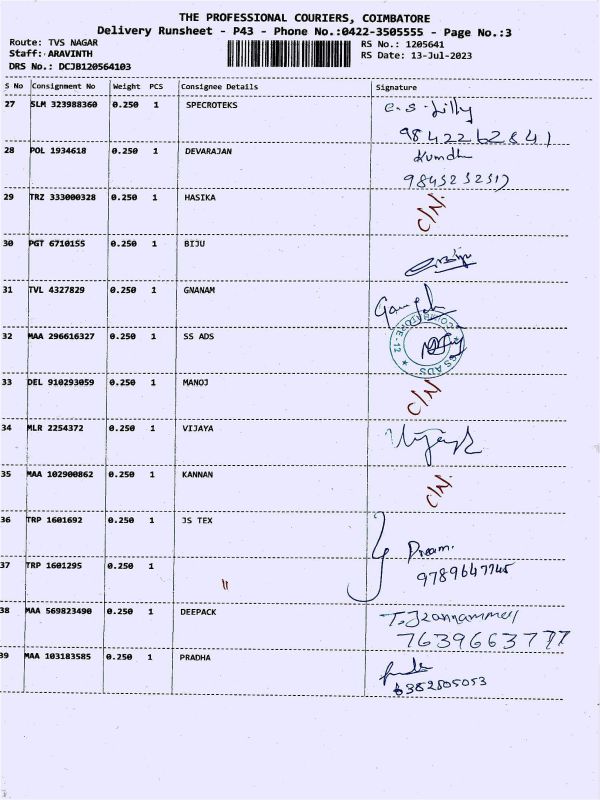 THE PROFESSIONAL COURIERS, COIMBATORE
Delivery Runsheet - P43 - Phone No.:0422-3505555 - Page No.:3
Route: TVS NAGAR
RS No.: 1205641
Staff: ARAVINTH
RS Date: 13-Jul-2023
DRS No.: DCJB120564103
S No Consignment No Weight PCS Consignee Details Signature
27 SLM 323988360 0.250 1 SPECROTEKS C.S. Lilly
9842262841
28 POL 1934618 0.250 1 DEVARAJAN
29 TRZ 333000328 0.250 1 HASIKA C/N.
30 PGT 6710155 0.250 1 BIJU
31 TVL 4327829 0.250 1 GNANAM
32 MAA 296616327 0.250 1 SS ADS
COIMBATORE-12
SS ADS
33 DEL 910293059 0.250 1 MANOJ C/N.
34 MLR 2254372 0.250 1 VIJAYA
35 MAA 102900862 0.250 1 KANNAN C/N.
36 TRP 1601692 0.250 1 JS TEX
37 TRP 1601295 0.250 1 "
9789647745
38 MAA 569823490 0.250 1 DEEPACK
7639663777
39 MAA 103183585 0.250 1 PRADHA
6382805053